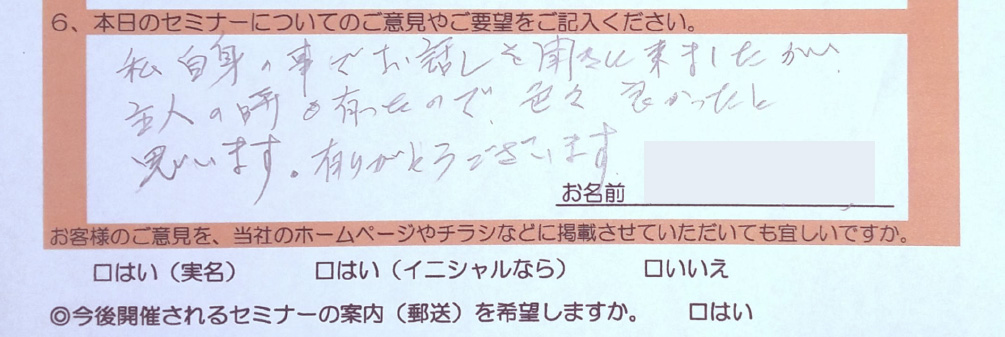 6、本日のセミナーについてのご意見やご要望をご記入ください。
私自身の事でお話しを聞きに来ましたがい、
主人の時も有ったので、色々良かったと
思います。有りがとうございます
お名前
お客様のご意見を、当社のホームページやチラシなどに掲載させていただいても宜しいですか。
□はい（実名） □はい（イニシャルなら） □いいえ
◎今後開催されるセミナーの案内（郵送）を希望しますか。 □はい